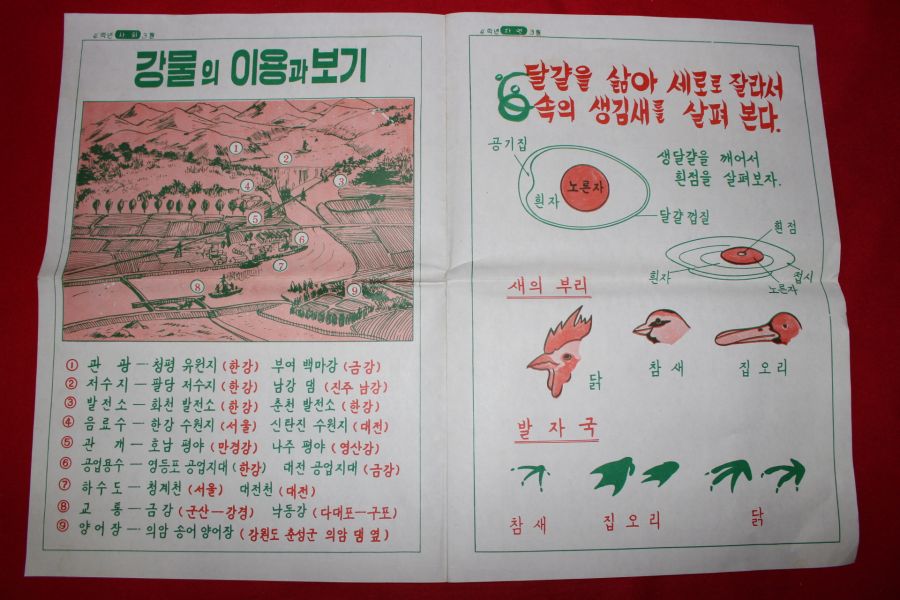 4학년 사회 3월
강물의 이용과 보기
①
②
③
④
⑤
⑥
⑦
⑧
⑨
① 관광 ― 청평 유원지 (한강) 부여 백마강 (금강)
② 저수지 ― 팔당 저수지 (한강) 남강 댐 (진주 남강)
③ 발전소 ― 화천 발전소 (한강) 춘천 발전소 (한강)
④ 음료수 ― 한강 수원지 (서울) 신탄진 수원지 (대전)
⑤ 관개 ― 호남 평야 (만경강) 나주 평야 (영산강)
⑥ 공업용수 ― 영등포 공업지대 (한강) 대전 공업지대 (금강)
⑦ 하수도 ― 청계천 (서울) 대전천 (대전)
⑧ 교통 ― 금강 (군산―강경) 낙동강 (다대포―구포)
⑨ 양어장 ― 의암 송어 양어장 (강원도 춘성군 의암 댐 옆)
4학년 자연 3월
6 달걀을 삶아 세로로 잘라서
속의 생김새를 살펴 본다.
공기집
노른자
흰자
달걀 껍질
생달걀을 깨어서
흰점을 살펴보자.
흰점
흰자
접시
노른자
새의 부리
닭
참새
집오리
발자국
참새
집오리
닭